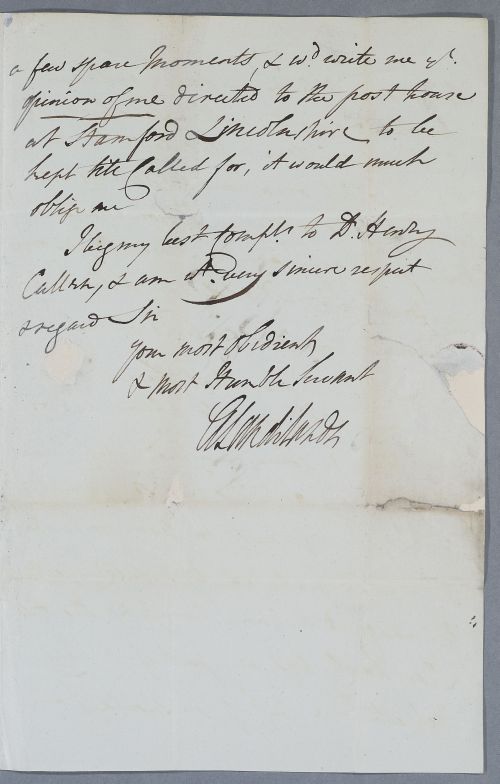 a few spare Moments, & wd. write me yr.
opinion of me directed to the post house
at Stamford Lincolnshire to be
kept till Called for, it would much
oblige me
I beg my best Complts. to Dr. Henry
Cullen, & am wt. very sincere respect
& regard Sir
your most Obedient
& most Humble Servant